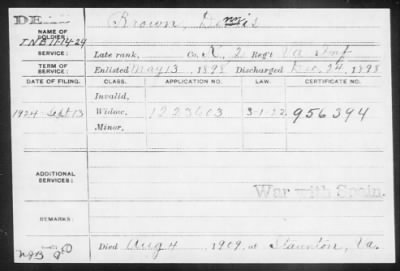 DE
NAME OF SOLDIER: Brown, Dennis
INB 11-14-24
SERVICE: Late rank, Co. K, 2 Reg't Va Inf
TERM OF SERVICE: Enlisted May 13, 1898 Discharged Dec. 24, 1898
DATE OF FILING. CLASS. APPLICATION NO. LAW. CERTIFICATE NO.
Invalid,
1924 Sept 13 Widow, 1223603 3-1-22 956394
Minor,
ADDITIONAL SERVICES:
War with Spain.
REMARKS:
Died Aug 4 1909, at Staunton, Va.